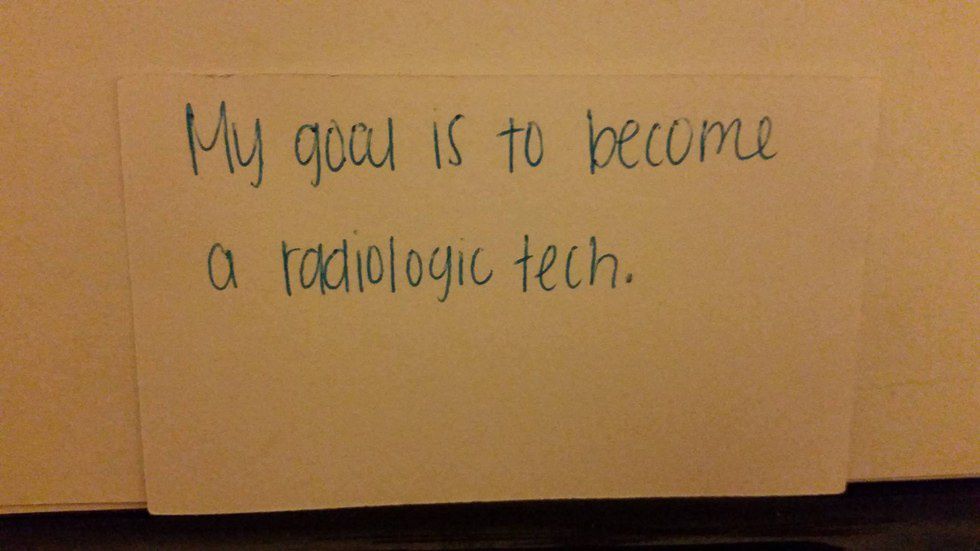 My goal is to become
a radiologic tech.